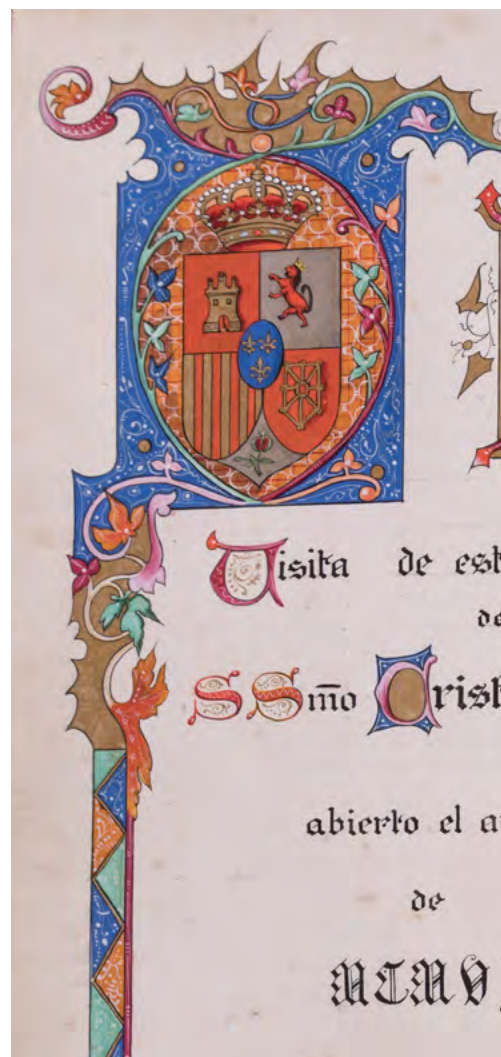 Visita de est
de
SSm̄o Crist
abierto el a
de
MCMV